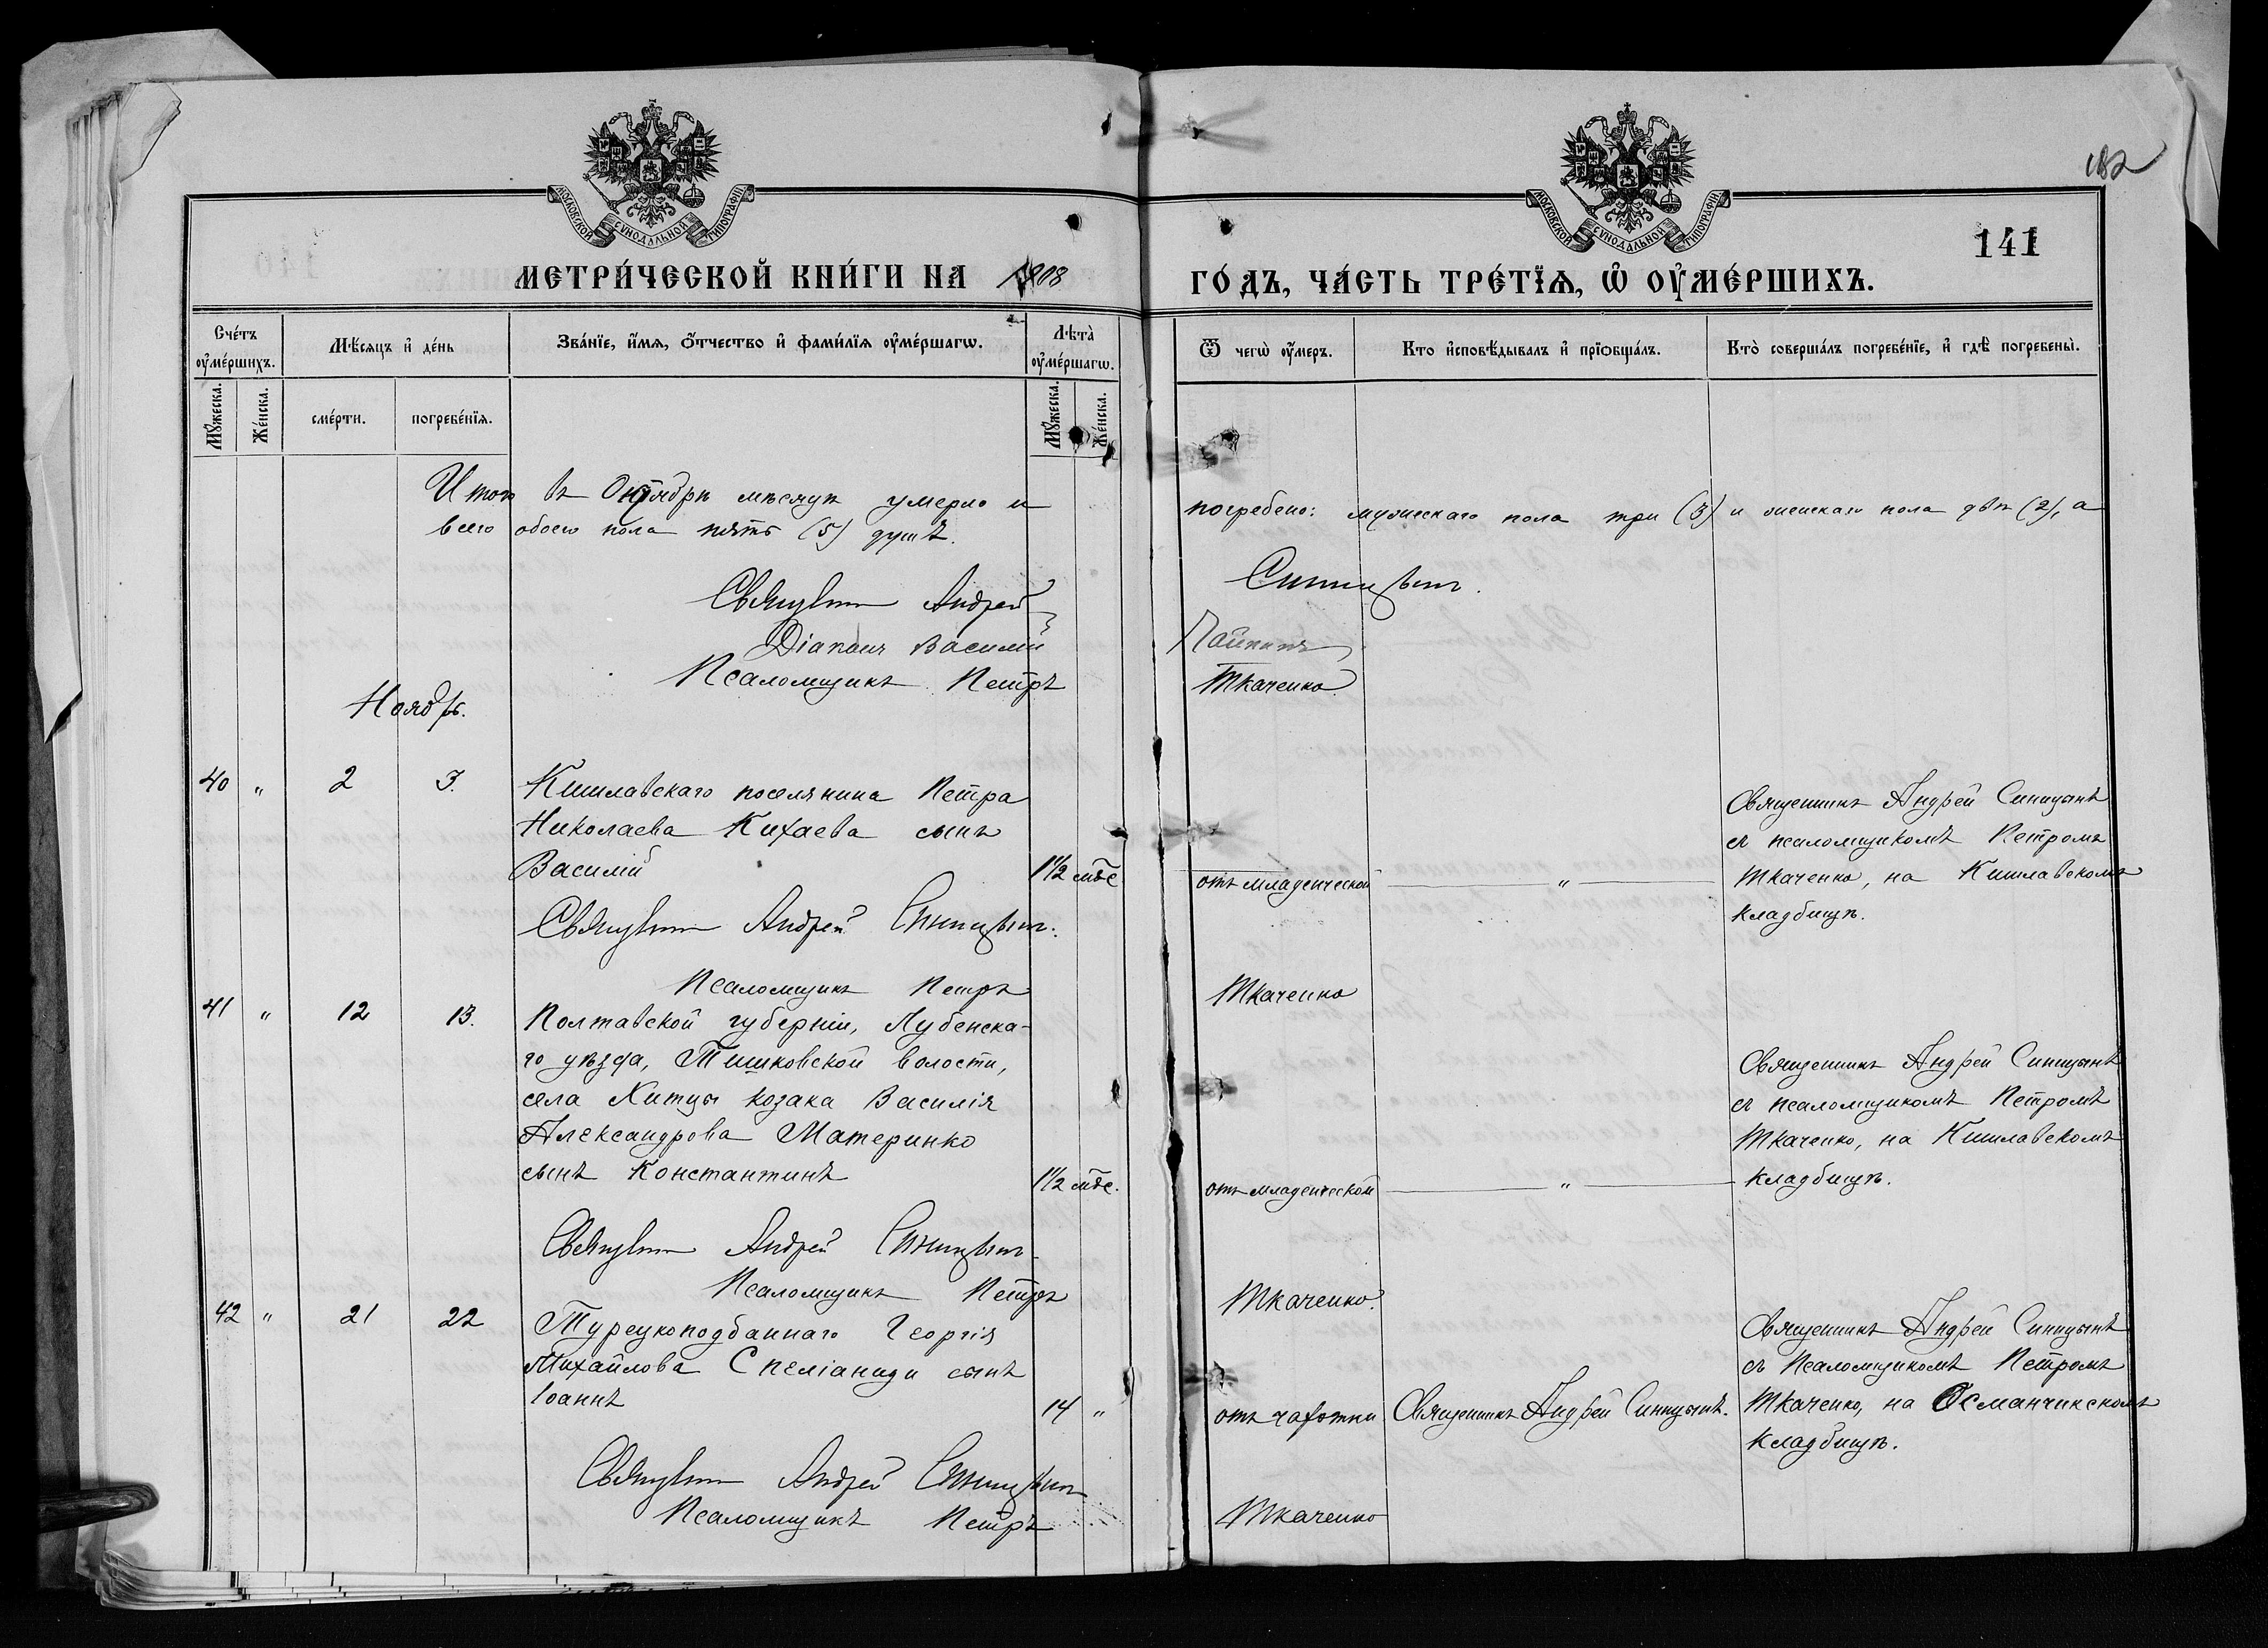 МОСКОВСКОЙ СѴНОДАЛЬНОЙ ТИПОГРАФІИ
МОСКОВСКОЙ СѴНОДАЛЬНОЙ ТИПОГРАФІИ
182
141
МЕТРИ́ЧЕСКОЙ КНИ́ГИ НА 1908 ГО́ДЪ, ЧА́СТЬ ТРЕ́ТЇѦ, Ѡ҆ ОУ҆МЕ́РШИХЪ.
Сче́тъ оу҆ме́ршихъ.
Мѹ́жеска.
Же́нска.
Мѣ́сяцъ и҆ де́нь
сме́рти.
погребе́нїѧ.
Зва́нїе, и҆́мѧ, ѻ҆́тчество и҆ фами́лїѧ оу҆ме́ршагѡ.
Лѣта̀ оу҆ме́ршагѡ.
Мѹ́жеска.
Же́нска.
Ѿ чегѡ̀ оу҆́меръ.
Кто̀ и҆сповѣ́дывалъ и҆ прїѡбща́лъ.
Кто̀ соверша́лъ погребе́нїе, и҆ гдѣ̀ погребены̀.
Итого въ Октябрѣ мѣсяцѣ умерло и погребено: мужескаго пола три (3) и женскаго пола двѣ (2), а
всего обоего пола пять (5) душъ.
Священникъ Андрей Синицынъ.
Діаконъ Василій
Псаломщикъ Петръ Ткаченко.
Ноябрь.
40 " 2 3. Кишлавскаго поселянина Петра
Николаева Кихаева сынъ
Василій 1½ мѣс. отъ младенческой "
Священникъ Андрей Синицынъ
съ псаломщикомъ Петромъ
Ткаченко, на Кишлавскомъ
кладбищѣ.
Священникъ Андрей Синицынъ.
Псаломщикъ Петръ Ткаченко
41 " 12 13. Полтавской губерніи, Лубенска-
го уѣзда, Тишковской волости,
села Хитцы козака Василія
Александрова Материнко
сынъ Константинъ 1½ мѣс. отъ младенческой "
Священникъ Андрей Синицынъ
съ псаломщикомъ Петромъ
Ткаченко, на Кишлавскомъ
кладбищѣ.
Священникъ Андрей Синицынъ
Псаломщикъ Петръ Ткаченко.
42 " 21 22 Турецкоподданнаго Георгія
Михайлова Спеліаниди сынъ
Іоаннъ 14 " отъ чахотки Священникъ Андрей Синицынъ.
Священникъ Андрей Синицынъ
съ Псаломщикомъ Петромъ
Ткаченко, на Османчикскомъ
кладбищѣ.
Священникъ Андрей Синицынъ
Псаломщикъ Петръ Ткаченко